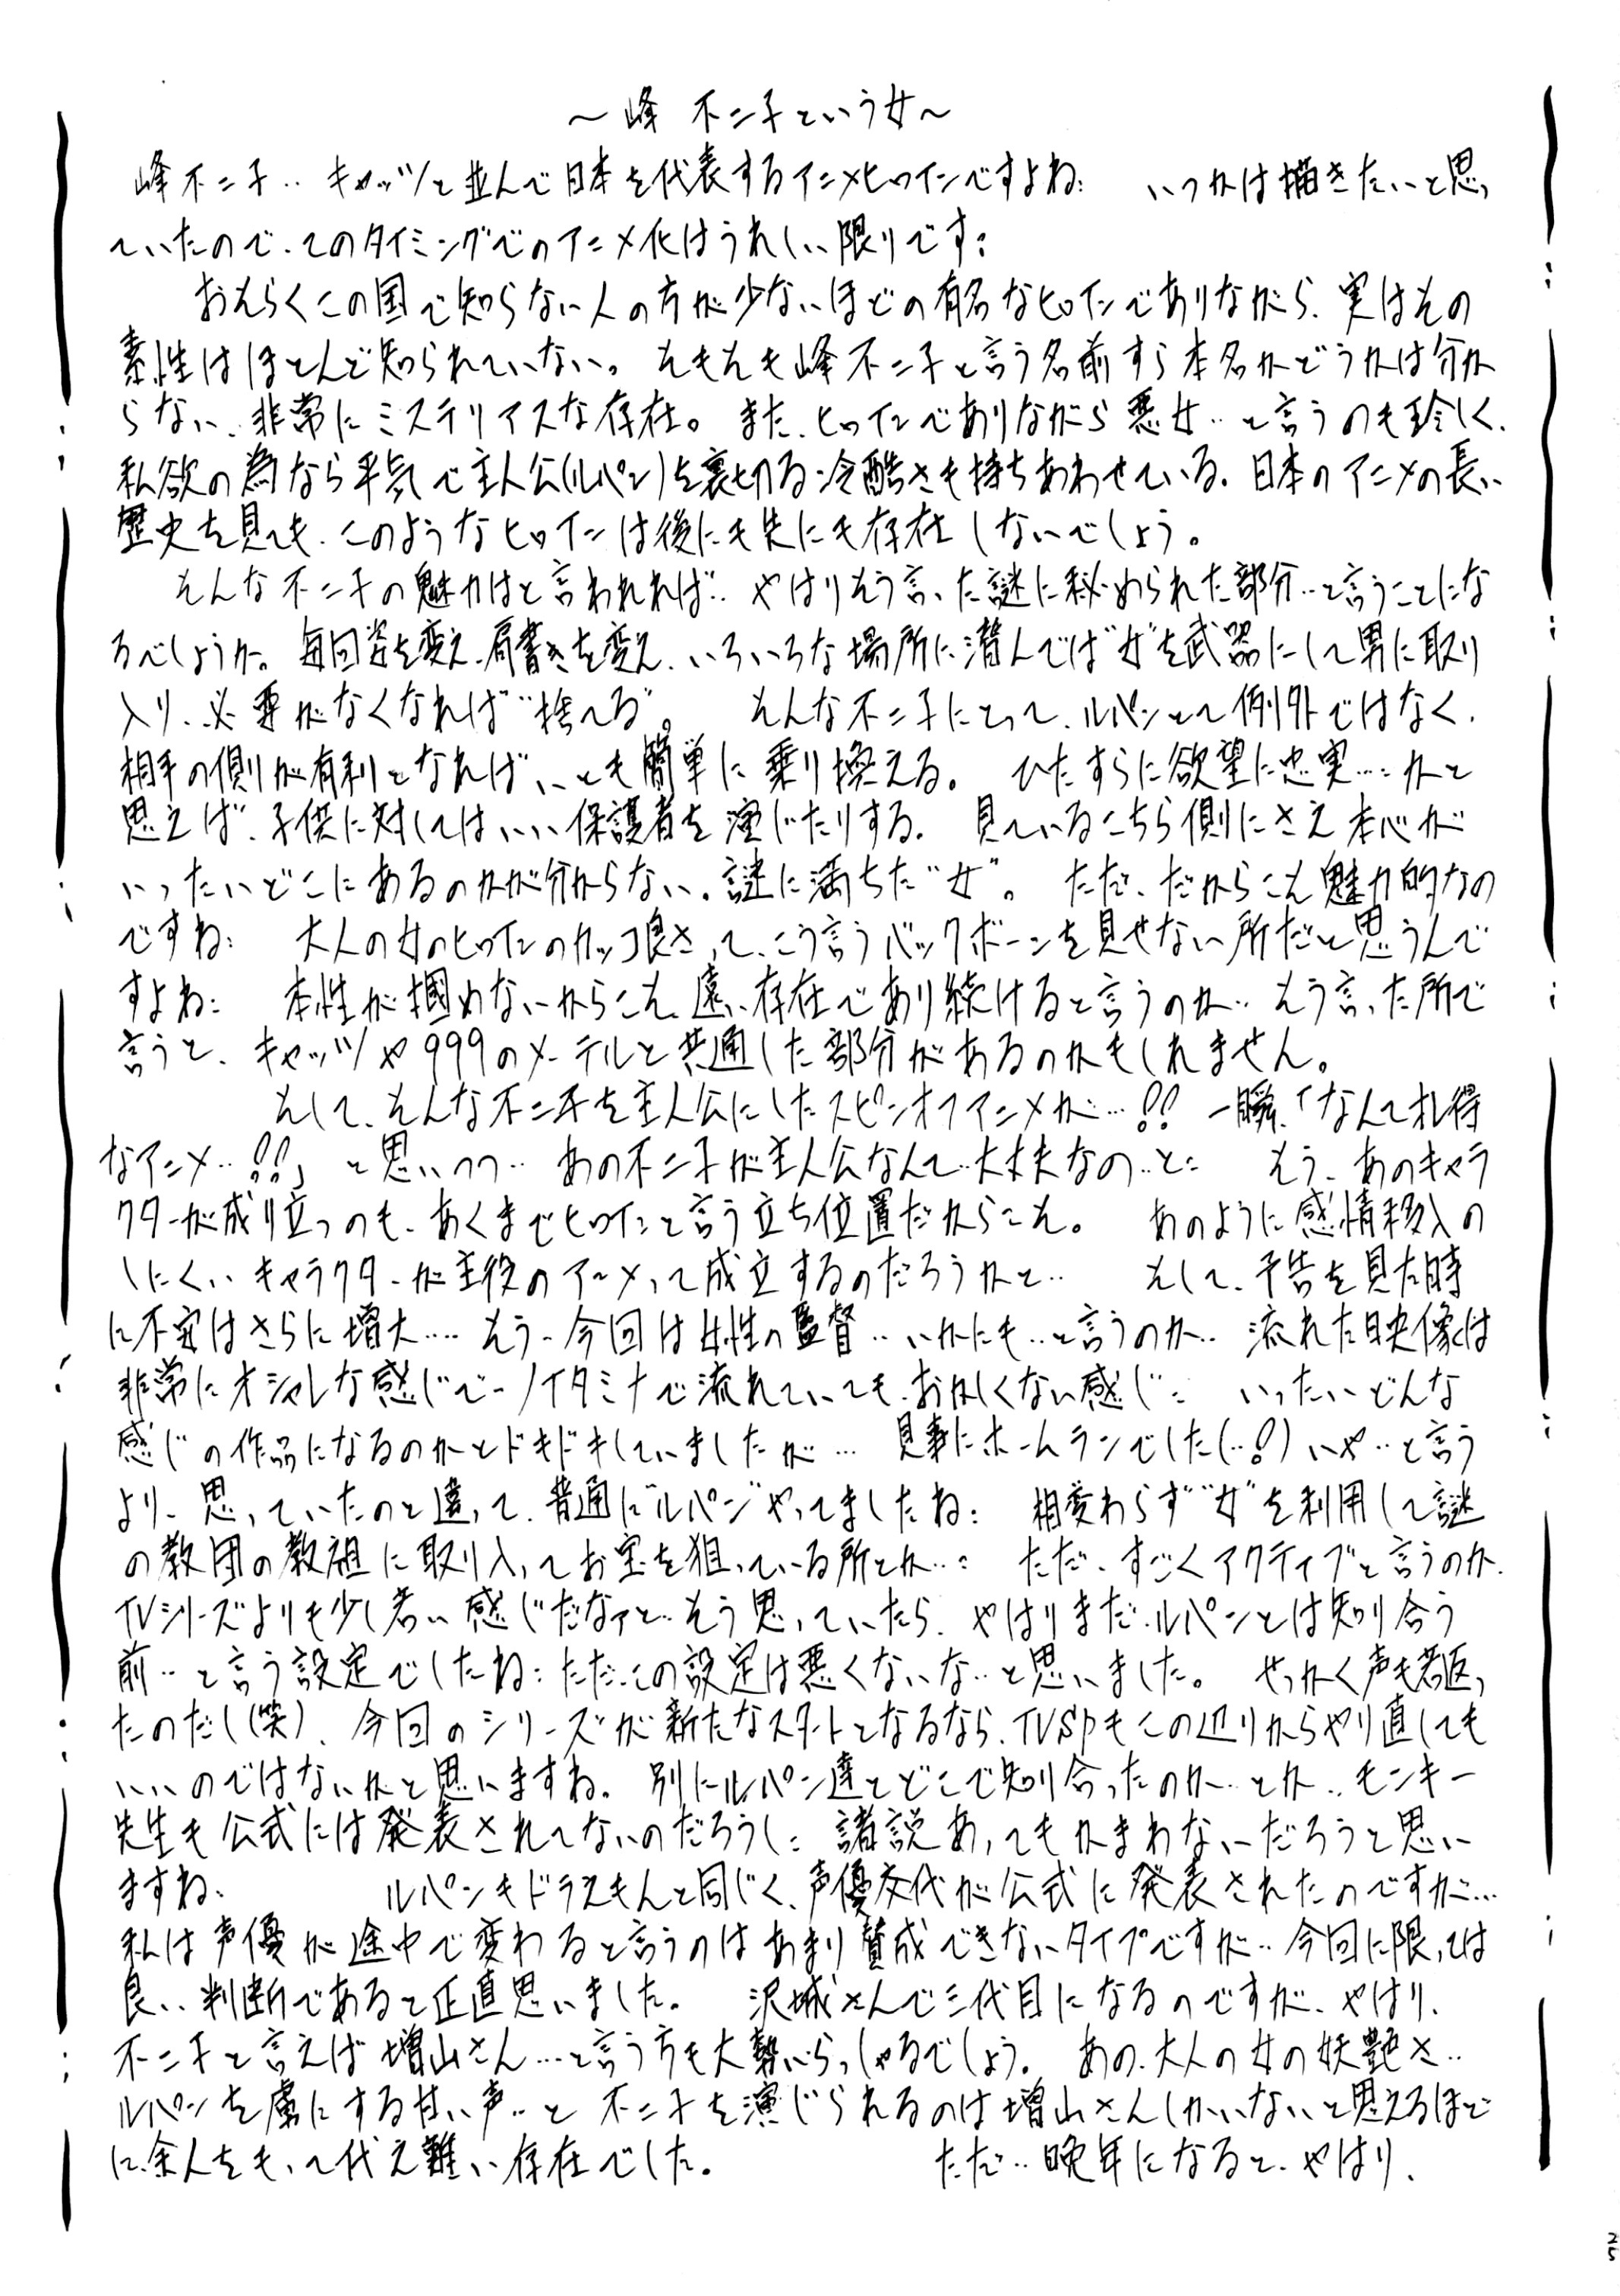 ～峰 不二子という女～
峰不二子‥キャッツと並んで日本を代表するアニメヒロインですよね： いつかは描きたいと思っ
ていたので、このタイミングでのアニメ化はうれしい限りです：
おそらくこの国で知らない人の方が少ないほどの有名なヒロインでありながら、実はその
素性はほとんど知られていない。そもそも峰不二子と言う名前すら本名かどうかは分か
らない、非常にミステリアスな存在。また、ヒロインでありながら悪女‥と言うのも珍しく、
私欲の為なら平気で主人公(ルパン)を裏切る冷酷さも持ちあわせている。日本のアニメの長い
歴史を見ても、このようなヒロインは後にも先にも存在しないでしょう。
そんな不二子の魅力はと言われれば‥やはりそう言った謎に秘められた部分‥と言うことにな
るでしょうか。毎回姿を変え、肩書きを変え、いろいろな場所に潜んでは“女”を武器にして男に取り
入り、必要がなくなれば“捨てる”。 そんな不二子にとって、ルパンとて例外ではなく、
相手の側が有利となれば、いとも簡単に乗り換える。 ひたすらに欲望に忠実…：かと
思えば、子供に対してはいい保護者を演じたりする。 見ているこちら側にさえ本心が
いったいどこにあるのかが分からない、謎に満ちた“女”。 ただ、だからこそ魅力的なの
ですね： 大人の女のヒロインのカッコ良さって、こう言うバックボーンを見せない所だと思うんで
すよね： 本性が掴めないからこそ、遠い存在であり続けると言うのか‥そう言った所で
言うと、キャッツや999のメーテルと共通した部分があるのかもしれません。
そして、そんな不二子を主人公にしたスピンオフアニメが…!! 一瞬、「なんてオレ得
なアニメ‥!!」と思いつつ‥あの不二子が主人公なんて‥大丈夫なの‥と： もう、あのキャラ
クターが成り立つのも、あくまでヒロインと言う立ち位置だからこそ。 あのように感情移入の
しにくいキャラクターが主役のアニメって成立するのだろうかと‥ そして、予告を見た時
に不安はさらに増大…‥そう、今回は女性の監督‥いかにも‥と言うのか‥流れた映像は
非常にオシャレな感じで、ノイタミナで流れていても、おかしくない感じ： いったいどんな
感じの作品になるのかとドキドキしていましたが… 見事にホームランでした(‥!)いや‥と言う
より、思っていたのと違って、普通に“ルパン”やってましたね： 相変わらず“女”を利用して謎
の教団の教祖に取り入ってお宝を狙っている所とか…： ただ、すごくアクティブと言うのか、
TVシリーズよりも少し若い感じだなァと‥そう思っていたら、やはりまだ、ルパンとは知り合う
前‥と言う設定でしたね：ただ、この設定は悪くないな‥と思いました。 せっかく声も若返っ
たのだし(笑)、今回のシリーズが新たなスタートとなるなら、TVSPもこの辺りからやり直しても
いいのではないかと思いますね。別にルパン達とどこで知り合ったのか‥とか‥モンキー
先生も公式には発表されてないのだろうし： 諸説あってもかまわないだろうと思い
ますね。 ルパンもドラえもんと同じく、声優交代が公式に発表されたのですが…
私は声優が途中で変わると言うのはあまり賛成できないタイプですが‥今回に限っては
良い判断であると正直思いました。 沢城さんで三代目になるのですが、やはり、
不二子と言えば増山さん…と言う方も大勢いらっしゃるでしょう。 あの、大人の女の妖艶さ‥
ルパンを虜にする甘い声‥と 不二子を演じられるのは増山さんしかいないと思えるほど
に、余人をもって代え難い存在でした。 ただ‥晩年になると、やはり、
25